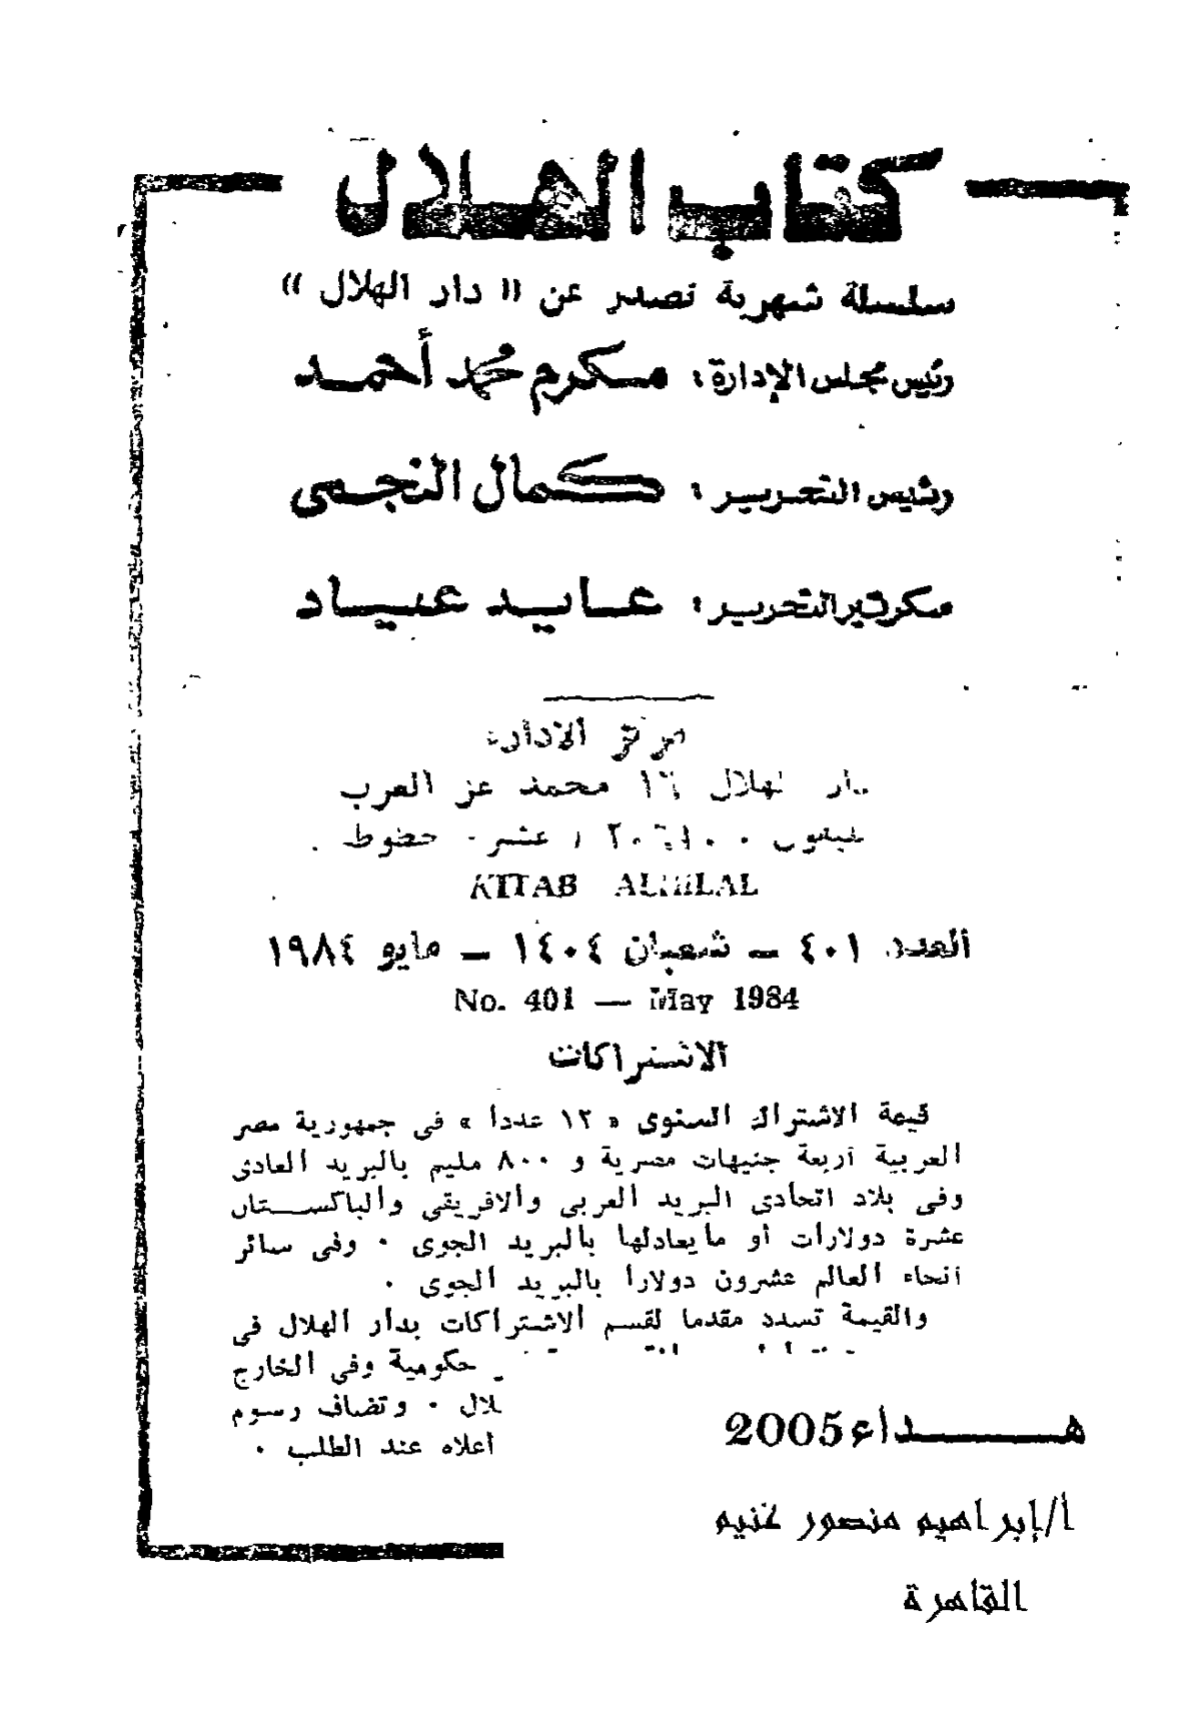 كتاب الهلال
سلسلة شهرية تصدر عن « دار الهلال »
رئيس مجلس الإدارة : مكرم محمد أحمد
رئيس التحرير : كمال النجمى
سكرتير التحرير : عايد عياد
مركز الادارة
دار الهلال ١٦ محمد عز العرب
عشرة خطوط
KITAB ALHILAL
العدد ٤٠١ ــ شعبان ١٤٠٤ ــ مايو ١٩٨٤
No. 401 — May 1984
الاشتراكات
قيمة الاشتراك السنوى « ١٢ عددا » فى جمهورية مصر
العربية أربعة جنيهات مصرية و ٨٠٠ مليم بالبريد العادى
وفى بلاد اتحادى البريد العربى والافريقى والباكستان
عشرة دولارات أو مايعادلها بالبريد الجوى ٠ وفى سائر
أنحاء العالم عشرون دولارا بالبريد الجوى ٠
والقيمة تسدد مقدما لقسم الاشتراكات بدار الهلال فى
حكومية وفى الخارج
لال ٠ وتضاف رسوم
أعلاه عند الطلب ٠
هـــداء2005
ا/إبراهيم منصور غنيم
القاهرة